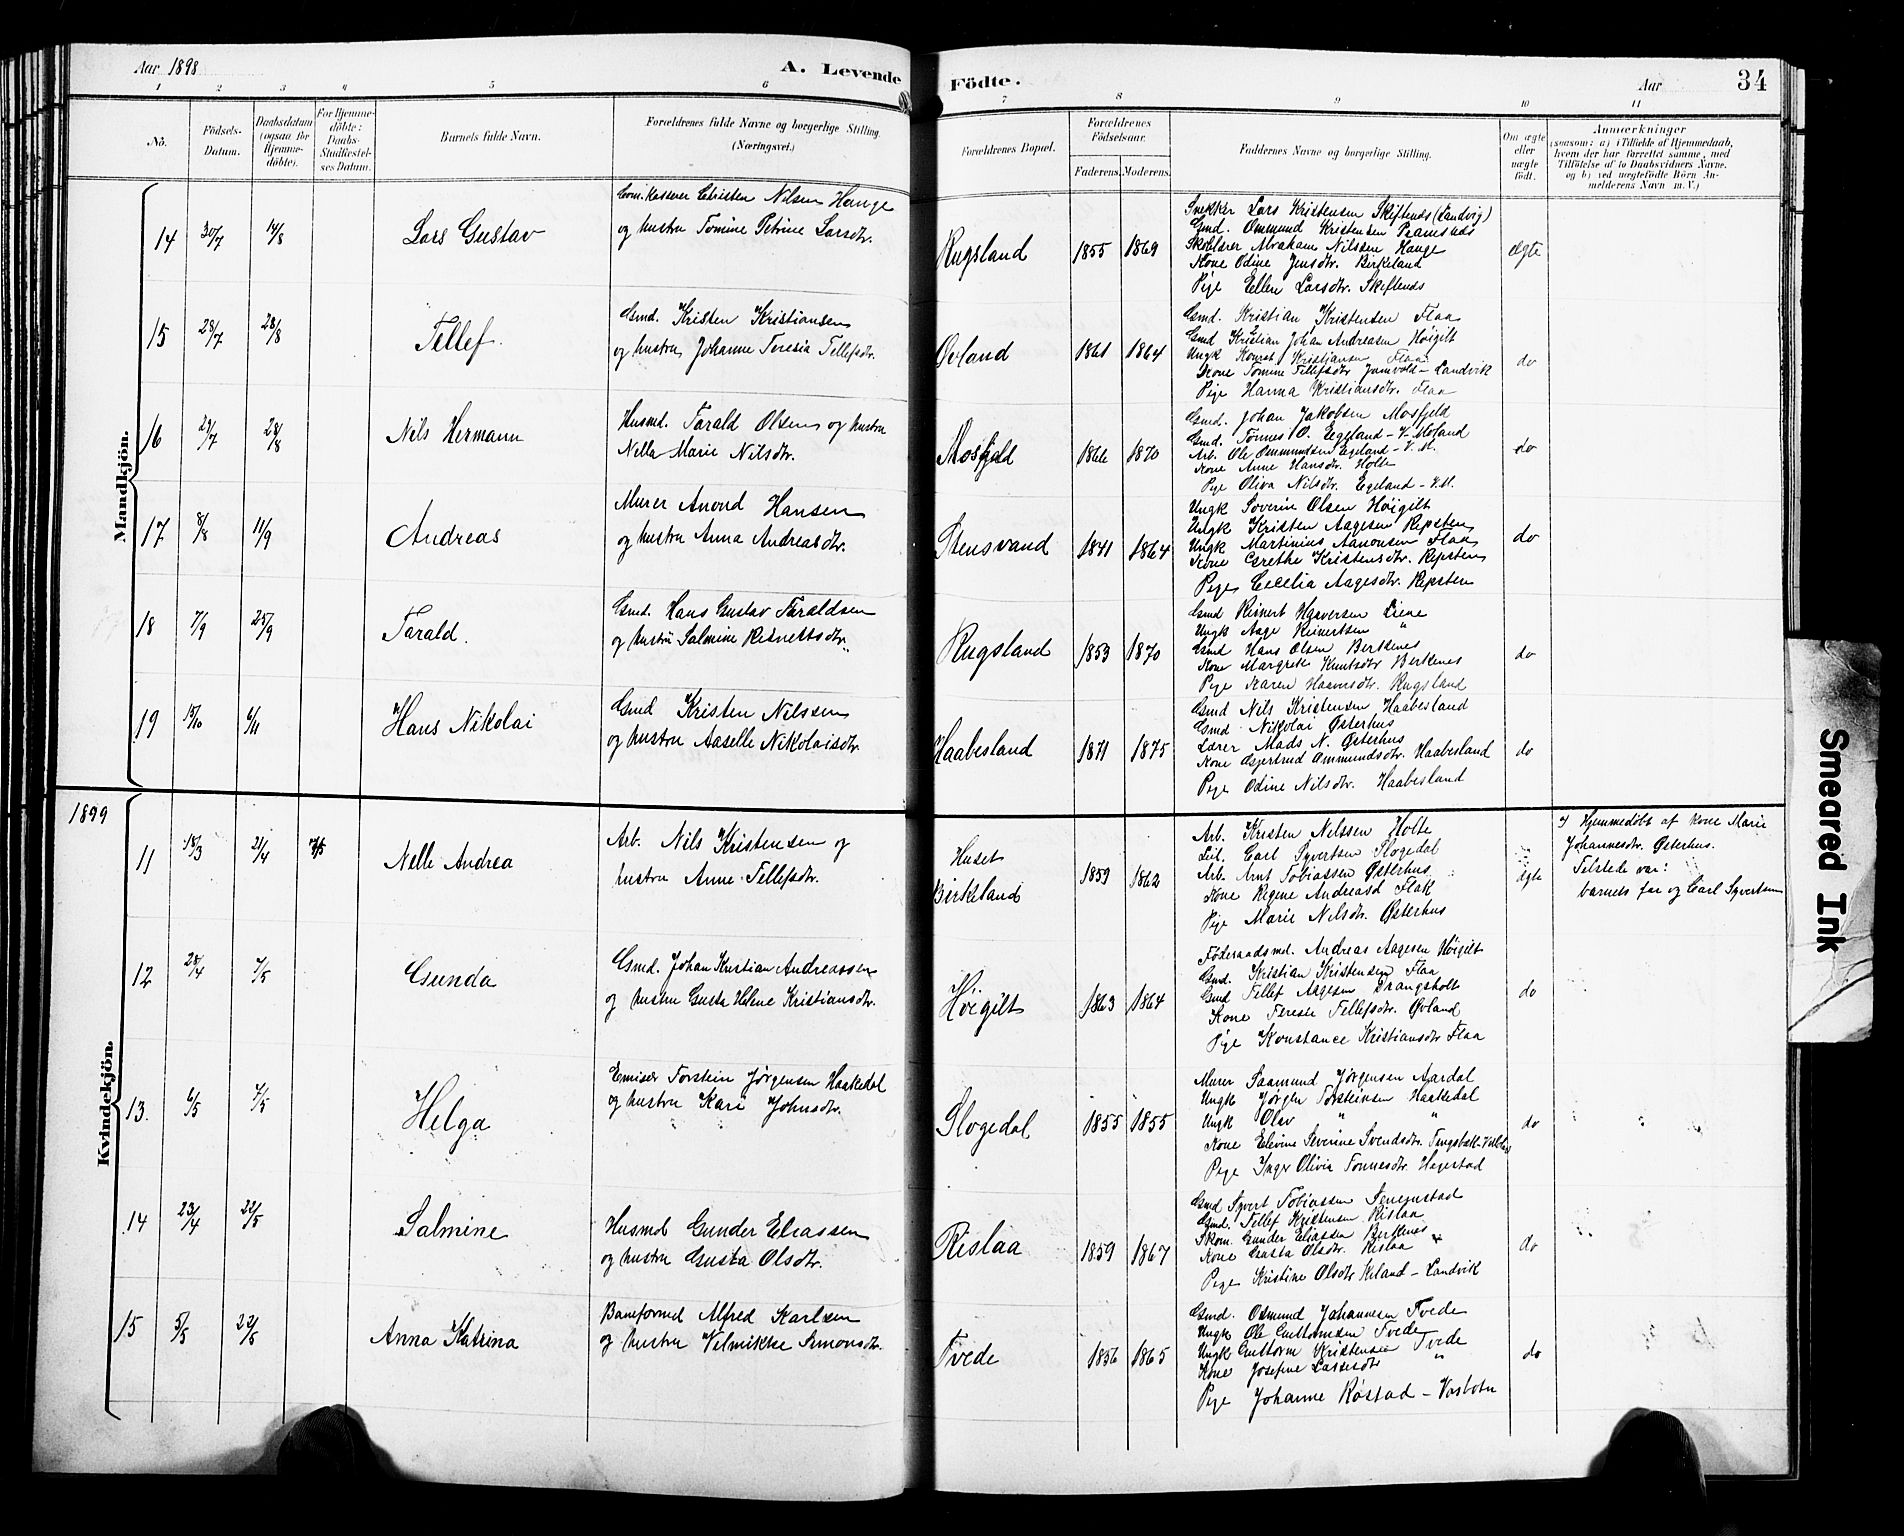 Aar 1898
A. Levende
Födte.
Aar
34
1 2 3 4 5 6 7 8 9 10 11
No.
Födsels-Datum.
Daabsdatum (ogsaa for Hjemme-döbte).
For Hjemme-döbte: Daabs-Stadfæstel-ses Datum.
Barnets fulde Navn.
Forældrenes fulde Navne og borgerlige Stilling. (Næringsvei.)
Forældrenes Bopæl.
Forældrenes Födselsaar.
Faderens. Moderens.
Faddernes Navne og borgerlige Stilling.
Om ægte eller uægte födt.
Anmærkninger
(saasom: a) i Tilfælde af Hjemmedaab, hvem der har forrettet samme, med Tilföielse af to Daabsvidners Navne. og b) ved uægtefödte Börn An-melderens Navn m. V.)
Mandkjön.
14 30/7 14/8 Lars Gustav
Kasserer Christen Nilsen Hauge
og hustru Tomine Petrine Larsdtr.
Rugsland 1855 1869
Snekker Lars Kristensen Skiftenes (Landvig)
Gmd. Ommund Kristensen
Skolelærer Abraham Nilssen Hauge
Kone Odine Jensdtr. Birkeland
Pige Ellen Larsdtr. Skiftenes
ægte
15 28/7 28/8 Tellef.
Gmd. Kristen Kristiansen
og hustru Johanne Teresia Tellefsdtr.
Øvland 1861 1864
Gmd. Kristian Kristensen Flaa
Gmd Kristian Johan Andreasen Höigilt
Ungk Kristiansen Flaa
Kone Tomine Tellefsdtr. - Landvik
Pige Hanna Kristiansdtr. Flaa
do
16 29/7 28/8 Nils Hermann
Husmd. Tarald Olsen og hustru
Nella Marie Nilsdtr.
Mosfjeld 1866 1870
Gmd. Johan Jakobsen Mosfjeld
Gmd. Tönnes O. Egeland - V. Moland
Arb. Ole Ommundsen Egeland - V. M.
Kone Anne Hansdtr. Holte
Pige Oliva Nilsdtr. Egeland - V.M.
do
17 8/8 11/9 Andreas
Murer Anond Hansen
og hustru Anna Andreasdtr.
Stensvand 1841 1864
Ungk Soverin Olsen Höigilt
Ungk Kristen Aagesen Repsten
Ungk Martinius Aanonsen Flaa
Kone Grethe Kristensdtr. Repsten
Pige Cecelia Aagesdtr. Repsten
do
18 7/9 25/9 Tarald.
Gmd. Hans Gustav Taraldsen
og hustru Salmine Reinertsdtr.
Rugsland 1853 1870
Gmd Reinert Haaversen Liene
Ungk Aage Reinertsen "
Gmd Hans Olsen Berkenes
Kone Margrete Knutsdtr Berkenes
Pige Karen Rugsland
do
19 15/10 6/11 Hans Nikolai
Gmd Kristen Nilssen
og hustru Aaselle Nikolaisdtr.
Haabesland 1871 1875
Gmd Nils Kristensen Haabesland
Gmd Nikolai Østerhus
Lærer Mads N. Østerhus
Kone Gjertrud Ommundsdtr. Haabesland
Pige Odine Nilsdtr. Haabesland
do
1899
Kvindekjön.
11 18/3 21/4 7/5 Nelle Andrea
Arb. Nils Kristensen og
hustru Anne Tellefsdtr.
Huset
Birkeland 1859 1862
Arb. Kristen Nelssen Holte
Carl Syvertsen Flogedal
Arb. Arnt Tobiassen Østerhus
Kone Regine Andreasd Flak
Pige Marie Nilsdtr. Østerhus
ægte
Hjemmedöbt af kone Marie
Johannesdtr. Østerhus.
Tilstede var:
barnets far og Carl Syvertsen
12 28/4 7/5 Gunda
Gmd. Johan Kristian Andreassen
og hustru Gusta Helene Kristiansdtr.
Höigilt 1863 1864
Föderaadsmd. Andreas Aagesen Höigilt
Gmd. Kristian Kristensen Flaa
Gmd Tellef Aagesen Drangsholt
Kone Terese Tellefsdtr. Øvland
Pige Konstance Kristiansdtr Flaa
do
13. 6/5 7/5 Helga
Emisær Torstein Jørgensen Haakedal
og hustru Kari Johnsdtr.
Flogedal 1855 1855
Murer Saamund Jørgensen Aardal
Ungk Jørgen Torsteinsen Haakedal
Ungk Olav " "
Kone Elevine Severine Svendsdtr.
Pige Inger Olivia Tonnesdtr. Hegestad
do
14 23/4 22/5 Salmine
Husmd Gunder Eliassen
og hustru Gusta Olsdtr.
Rislaa 1859 1867
Gmd Syvert Tobiassen Senumstad
Gmd. Tellef Kristensen Rislaa
Skom. Gunder Eliassen Berkenes
Kone Gusta Olsdtr. Rislaa
Pige Kristine Olsdtr - Landvik
do
15 5/5 22/5 Anna Katrina
Baneformd Alfred Karlsen
og hustru Vilmikke Simonsdtr.
Tvede 1856 1865
Gmd. Osmund Johannesen Tvede
Ungk Ole Guttormsen Tvede
Ungk Guttorm Kristensen Tvede
Kone Josefine Lassesdtr "
Pige Johanne Røstad - Vasbotn
do
Smeared Ink